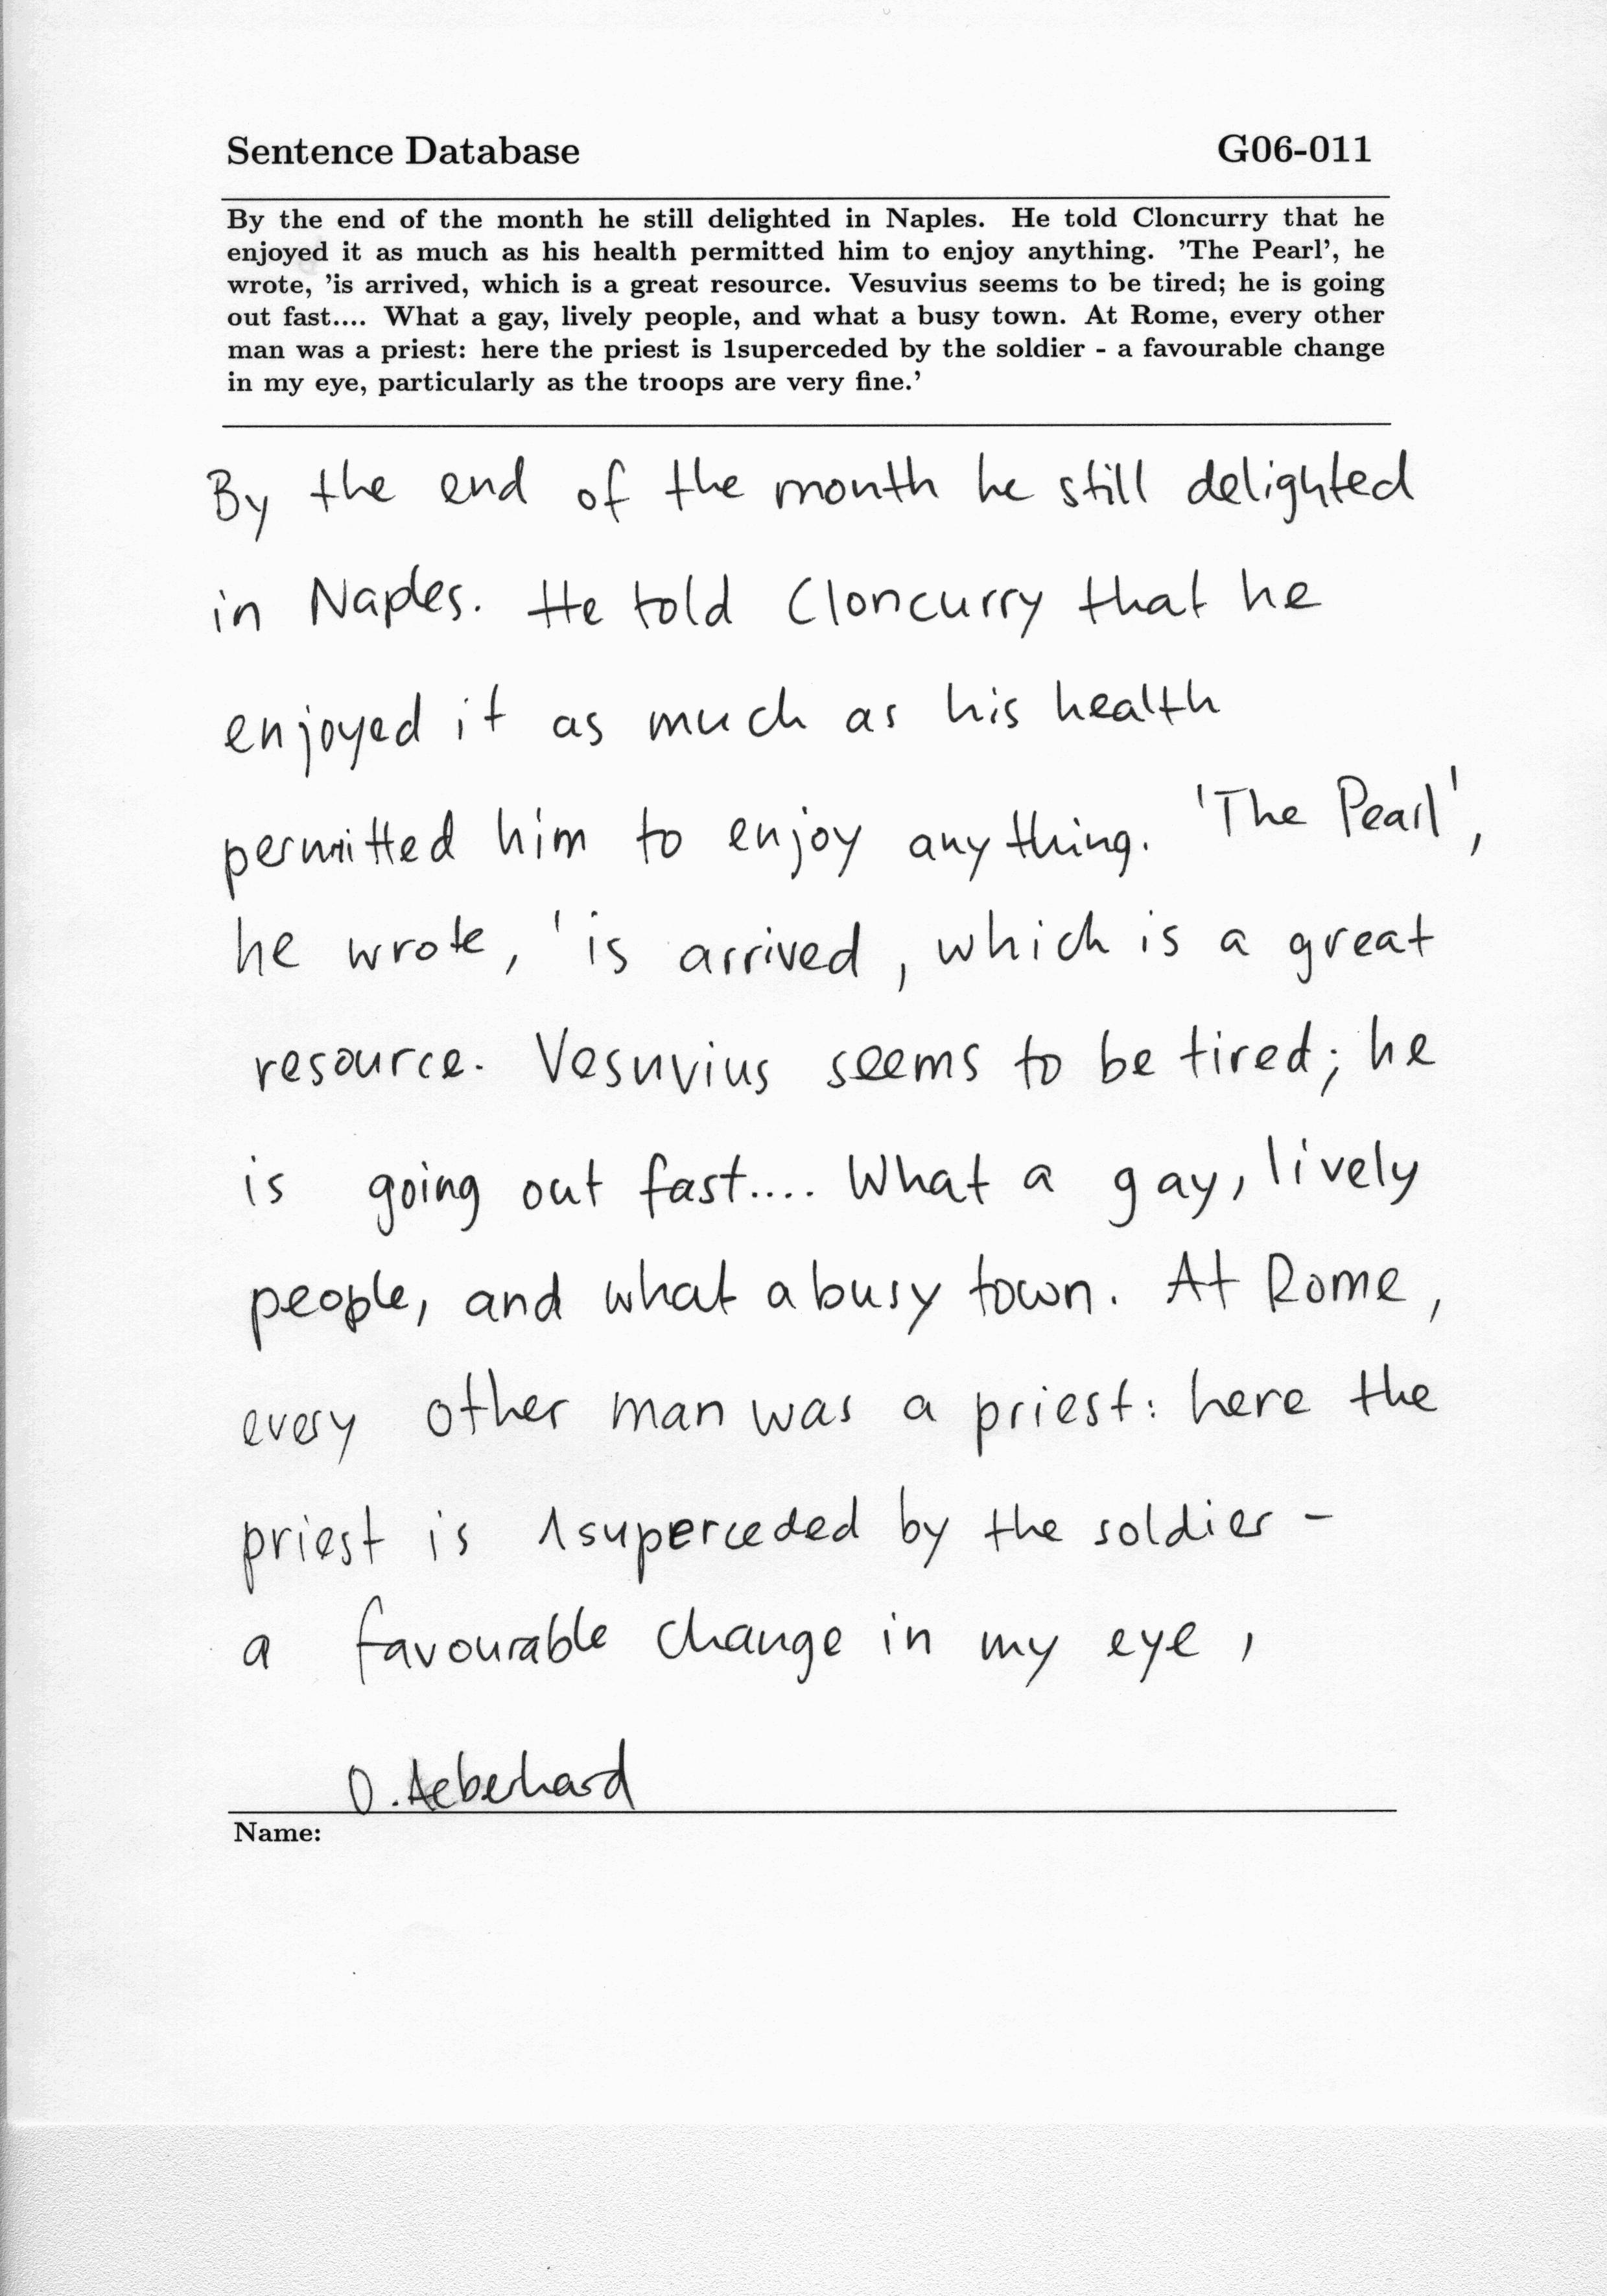 Sentence Database G06-011
By the end of the month he still delighted in Naples. He told Cloncurry that he
enjoyed it as much as his health permitted him to enjoy anything. 'The Pearl', he
wrote, 'is arrived, which is a great resource. Vesuvius seems to be tired; he is going
out fast.... What a gay, lively people, and what a busy town. At Rome, every other
man was a priest: here the priest is 1superceded by the soldier - a favourable change
in my eye, particularly as the troops are very fine.'
By the end of the month he still delighted
in Naples. He told Cloncurry that he
enjoyed it as much as his health
permitted him to enjoy anything. 'The Pearl',
he wrote, 'is arrived, which is a great
resource. Vesuvius seems to be tired; he
is going out fast.... What a gay, lively
people, and what a busy town. At Rome,
every other man was a priest: here the
priest is 1superceded by the soldier -
a favourable change in my eye,
O. Aeberhard
Name: